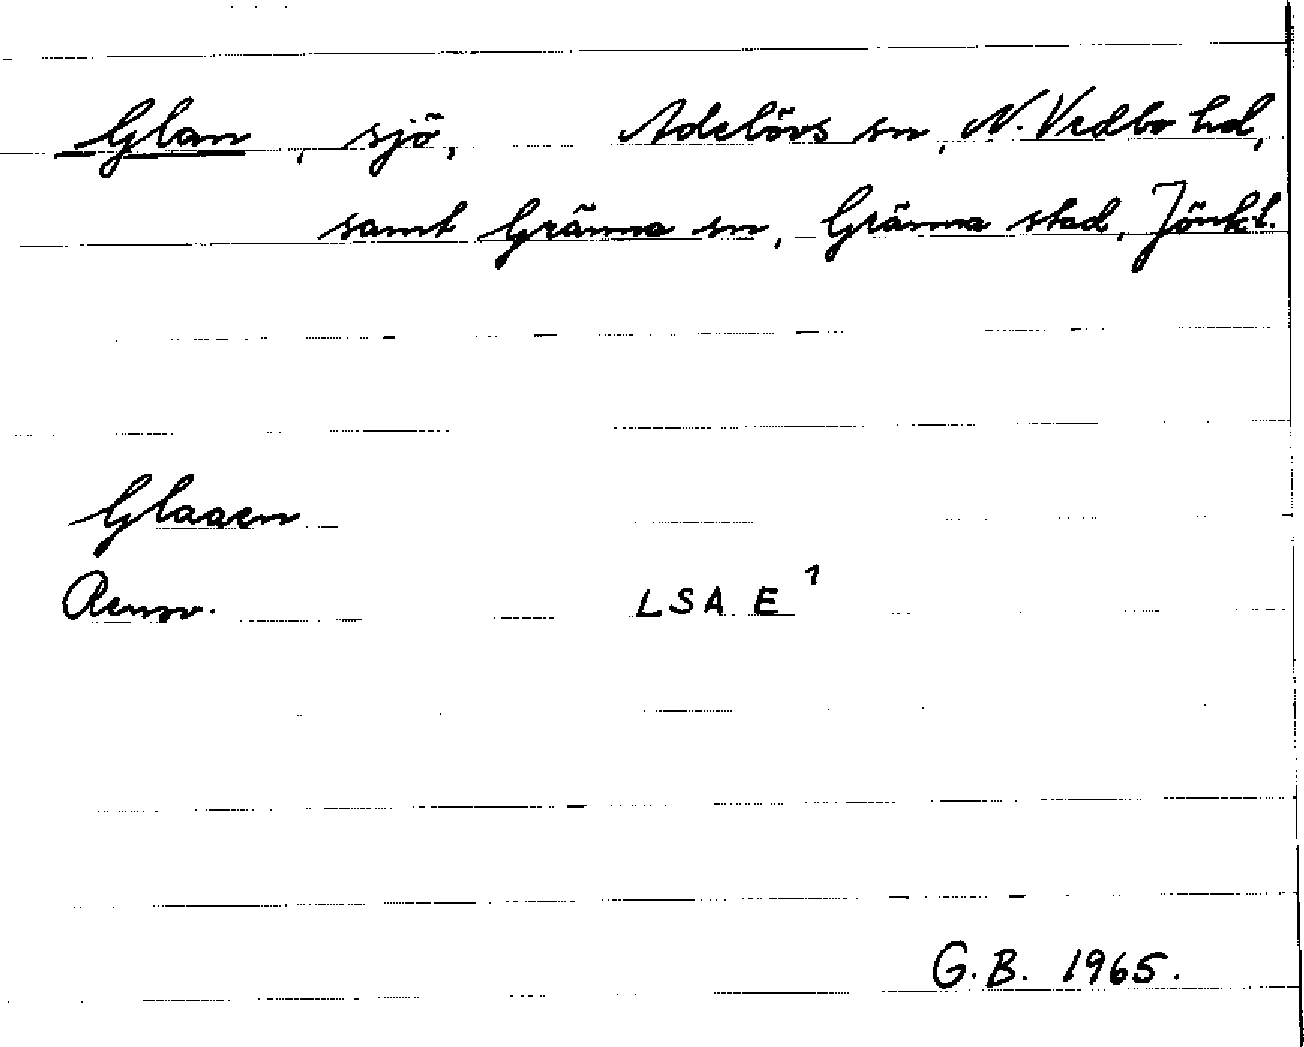 Glan, sjö, Adelövs sn, N. Vedbo hd,
samt Gränna sn, Gränna stad, Jönk. l.
Glaaen
Renov. LSA E 1
G.B. 1965.